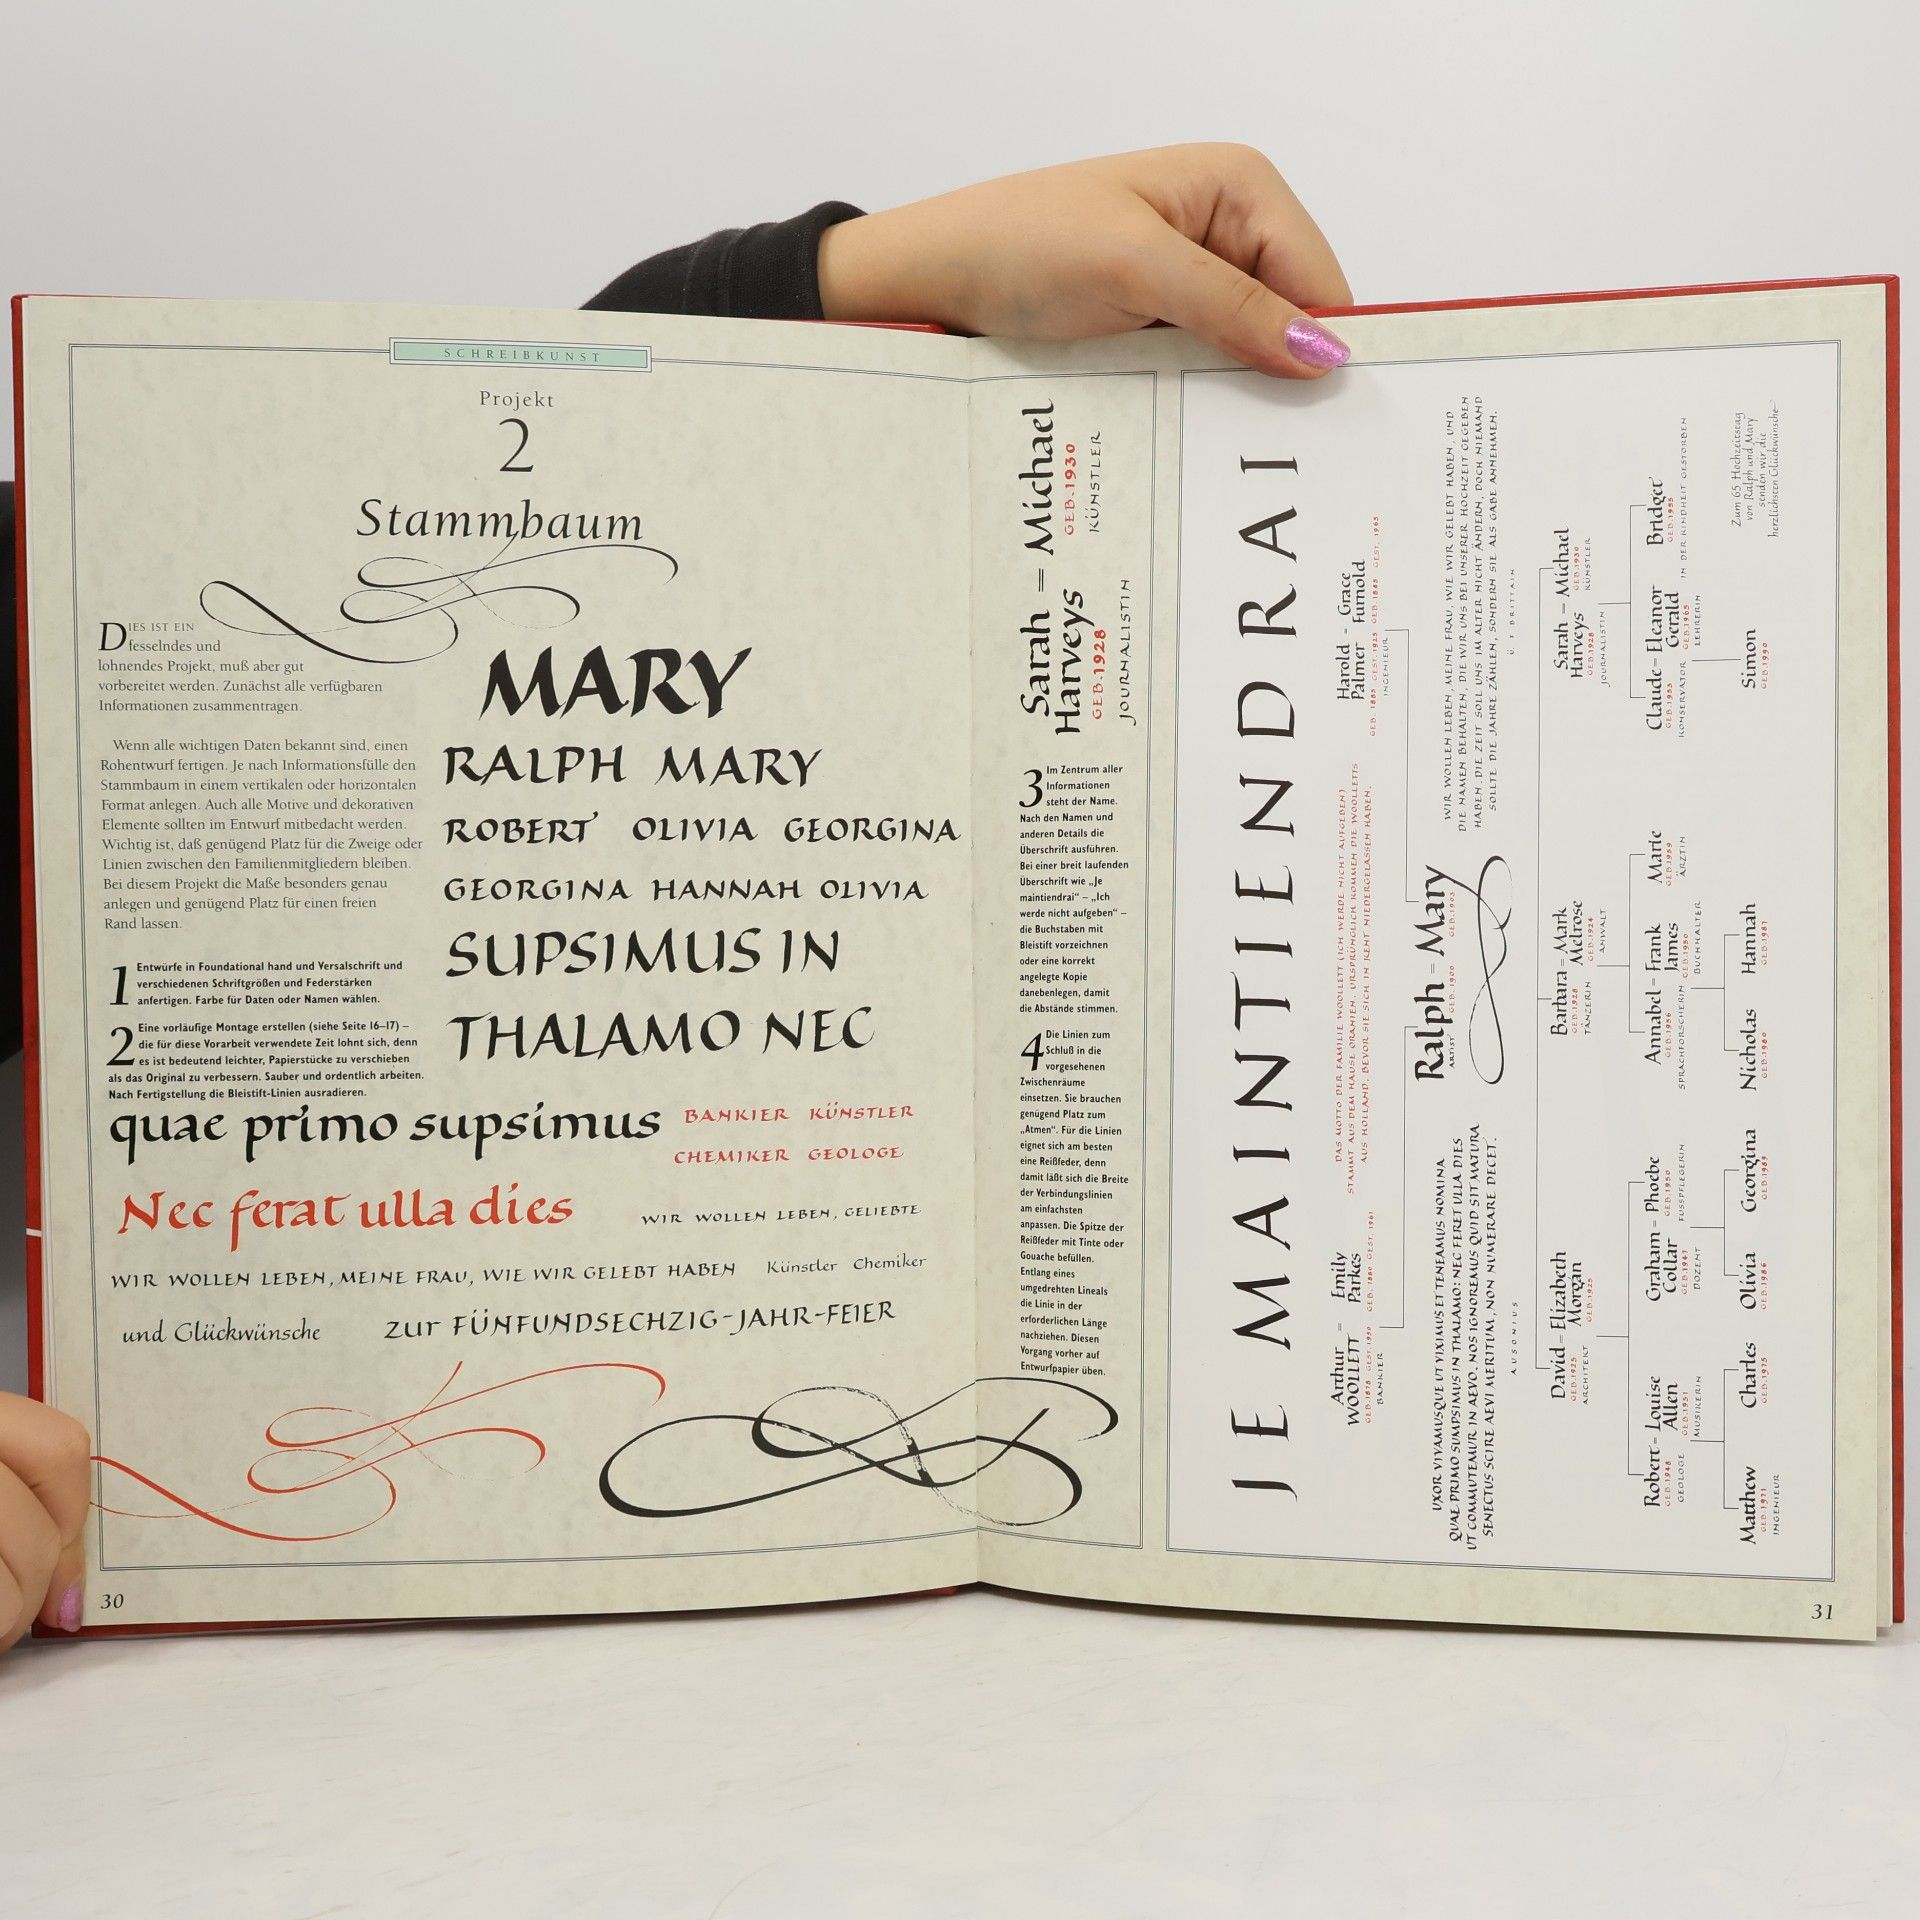 SCHREIBKUNST
Projekt
2
Stammbaum
DIES IST EIN
fesselndes und
lohnendes Projekt, muß aber gut
vorbereitet werden. Zunächst alle verfügbaren
Informationen zusammentragen.
Wenn alle wichtigen Daten bekannt sind, einen
Rohentwurf fertigen. Je nach Informationsfülle den
Stammbaum in einem vertikalen oder horizontalen
Format anlegen. Auch alle Motive und dekorativen
Elemente sollten im Entwurf mitbedacht werden.
Wichtig ist, daß genügend Platz für die Zweige oder
Linien zwischen den Familienmitgliedern bleiben.
Bei diesem Projekt die Maße besonders genau
anlegen und genügend Platz für einen freien
Rand lassen.
1 Entwürfe in Foundational hand und Versalschrift und
verschiedenen Schriftgrößen und Federstärken
anfertigen. Farbe für Daten oder Namen wählen.
2 Eine vorläufige Montage erstellen (siehe Seite 16–17) –
die für diese Vorarbeit verwendete Zeit lohnt sich, denn
es ist bedeutend leichter, Papierstücke zu verschieben
als das Original zu verbessern. Sauber und ordentlich arbeiten.
Nach Fertigstellung die Bleistift-Linien ausradieren.
MARY
RALPH MARY
ROBERT OLIVIA GEORGINA
GEORGINA HANNAH OLIVIA
SUPSIMUS IN
THALAMO NEC
quae primo supsimus
BANKIER KÜNSTLER
CHEMIKER GEOLOGE
Nec ferat ulla dies
WIR WOLLEN LEBEN, GELIEBTE
WIR WOLLEN LEBEN, MEINE FRAU, WIE WIR GELEBT HABEN
Künstler Chemiker
und Glückwünsche
zur FÜNFUNDSECHZIG-JAHR-FEIER
30
Sarah = Michael
Harveys
GEB.1928
GEB.1930
JOURNALISTIN
KÜNSTLER
3 Im Zentrum aller
Informationen
steht der Name.
Nach den Namen und
anderen Details die
Überschrift ausführen.
Bei einer breit laufenden
Überschrift wie „Je
maintiendrai“ – „Ich
werde nicht aufgeben“ –
die Buchstaben mit
Bleistift vorzeichnen
oder eine korrekt
angelegte Kopie
danebenlegen, damit
die Abstände stimmen.
4 Die Linien zum
Schluß in die
vorgesehenen
Zwischenräume
einsetzen. Sie brauchen
genügend Platz zum
„Atmen“. Für die Linien
eignet sich am besten
eine Reißfeder, denn
damit läßt sich die Breite
der Verbindungslinien
am einfachsten
anpassen. Die Spitze der
Reißfeder mit Tinte oder
Gouache befüllen.
Entlang eines
umgedrehten Lineals
die Linie in der
erforderlichen Länge
nachziehen. Diesen
Vorgang vorher auf
Entwurfpapier üben.
JE MAINTIENDRAI
Arthur = Emily
WOOLLETT Parkes
GEB. 1878 GEST. 1950 GEB. 1880 GEST. 1961
BANKIER
DAS MOTTO DER FAMILIE WOOLLETT (ICH WERDE NICHT AUFGEBEN)
STAMMT AUS DEM HAUSE ORANIEN. URSPRÜNGLICH KOMMEN DIE WOOLLETTS
AUS HOLLAND, BEVOR SIE SICH IN KENT NIEDERGELASSEN HABEN.
Harold = Grace
Palmer Furnold
GEB. 1885 GEST. 1925 GEB. 1885 GEST. 1965
INGENIEUR
Ralph = Mary
ARTIST GEB. 1900 GEB. 1903
UXOR VIVAMUSQUE UT VIXIMUS ET TENEAMUS NOMINA
QUAE PRIMO SUMPSIMUS IN THALAMO: NEC FERET ULLA DIES
UT COMMUTEMUR IN AEVO. NOS IGNOREMUS QUID SIT MATURA
SENECTUS SCIRE AEVI MERITUM, NON NUMERARE DECET.
AUSONIUS
WIR WOLLEN LEBEN, MEINE FRAU, WIE WIR GELEBT HABEN, UND
DIE NAMEN BEHALTEN, DIE WIR UNS BEI UNSERER HOCHZEIT GEGEBEN
HABEN. DIE ZEIT SOLL UNS IM ALTER NICHT ÄNDERN, DOCH NIEMAND
SOLLTE DIE JAHRE ZÄHLEN, SONDERN SIE ALS GABE ANNEHMEN.
Ü. F BRITTAIN
David = Elizabeth
Morgan
GEB.1925 GEB.1925
ARCHITEKT
Barbara = Mark
Melrose
GEB.1928 GEB.1924
TÄNZERIN ANWALT
Sarah = Michael
Harveys
GEB.1928 GEB.1930
JOURNALISTIN KÜNSTLER
Robert = Louise
Allen
GEB.1948 GEB.1951
GEOLOGE MUSIKERIN
Graham = Phoebe
Collar
GEB.1947 GEB.1950
DOZENT FUSPFLEGERIN
Annabel = Frank
James
GEB.1956 GEB.1950
SPRACHFORSCHERIN BUCHHALTER
Marie
GEB.1959
ÄRZTIN
Claude = Eleanor
Gerald
GEB.1955 GEB.1965
KONSERVATOR LEHRERIN
Bridget
GEB.1955
IN DER KINDHEIT GESTORBEN
Matthew
GEB.1971
INGENIEUR
Charles
GEB.1975
Olivia
GEB.1986
Georgina
GEB.1989
Nicholas
GEB.1980
Hannah
GEB.1981
Simon
GEB.1990
Zum 65 Hochzeitstag
von Ralph und Mary
senden wir die
herzlichsten Glückwünsche
31